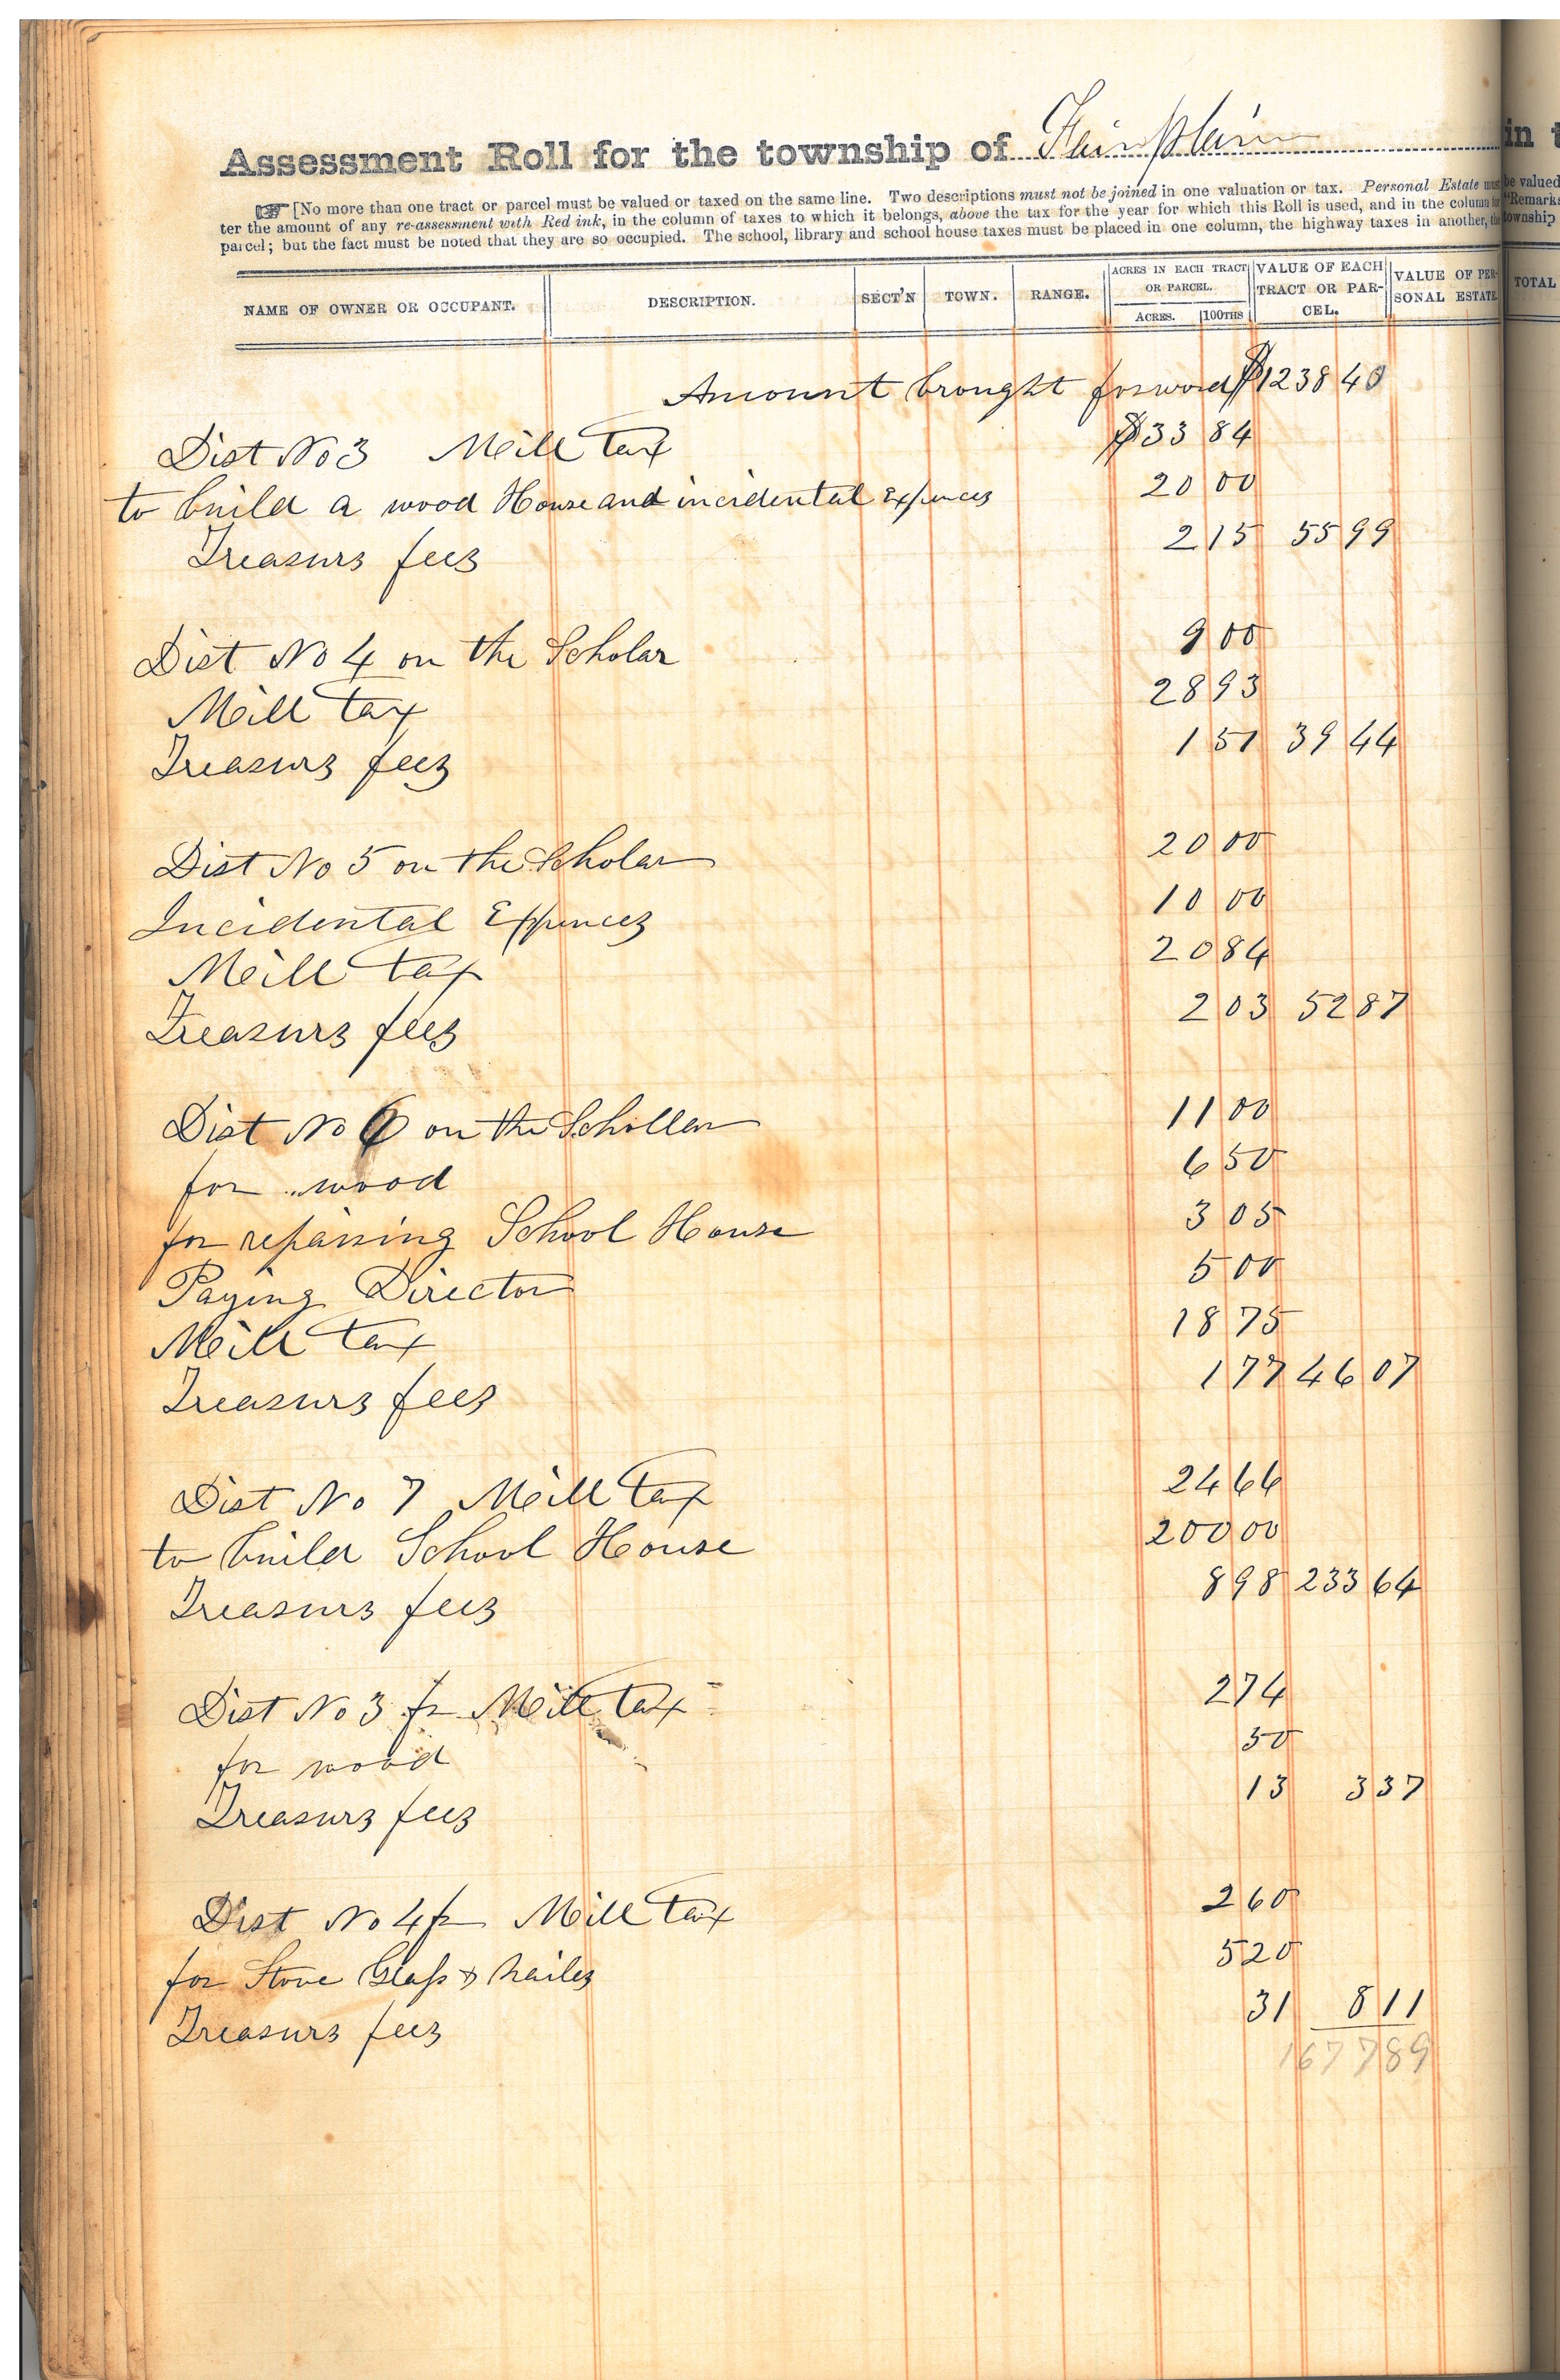 Assessment Roll for the township of Fairplain in t
☞ [No more than one tract or parcel must be valued or taxed on the same line. Two descriptions must not be joined in one valuation or tax. Personal Estate must be valued
ter the amount of any re-assessment with Red ink, in the column of taxes to which it belongs, above the tax for the year for which this Roll is used, and in the column for "Remarks
parcel; but the fact must be noted that they are so occupied. The school, library and school house taxes must be placed in one column, the highway taxes in another, the township
NAME OF OWNER OR OCCUPANT. DESCRIPTION. SECT'N TOWN. RANGE. ACRES IN EACH TRACT OR PARCEL. ACRES. 100THS VALUE OF EACH TRACT OR PARCEL. VALUE OF PERSONAL ESTATE. TOTAL
Amount brought forward $1238 40
Dist No 3 Mill tax $33 84
to build a wood House and incidental Expences 20 00
Treasurs fees 2 15 55 99
Dist No 4 on the Scholar 9 00
Mill tax 28 93
Treasurs fees 1 51 39 44
Dist No 5 on the Scholar 20 00
Incidental Expences 10 00
Mill tax 20 84
Treasurs fees 2 03 52 87
Dist No 6 on the Schollar 11 00
for wood 6 50
for repairing School House 3 05
Paying Director 5 00
Mill tax 18 75
Treasurs fees 1 77 46 07
Dist No 7 Mill tax 24 66
to build School House 200 00
Treasurs fees 8 98 233 64
Dist No 3 fr Mill tax 2 74
for wood 50
Treasurs fees 13 3 37
Dist No 4 fr Mill tax 2 60
for Stove Glass & nailes 5 20
Treasurs fees 31 8 11
1677 89